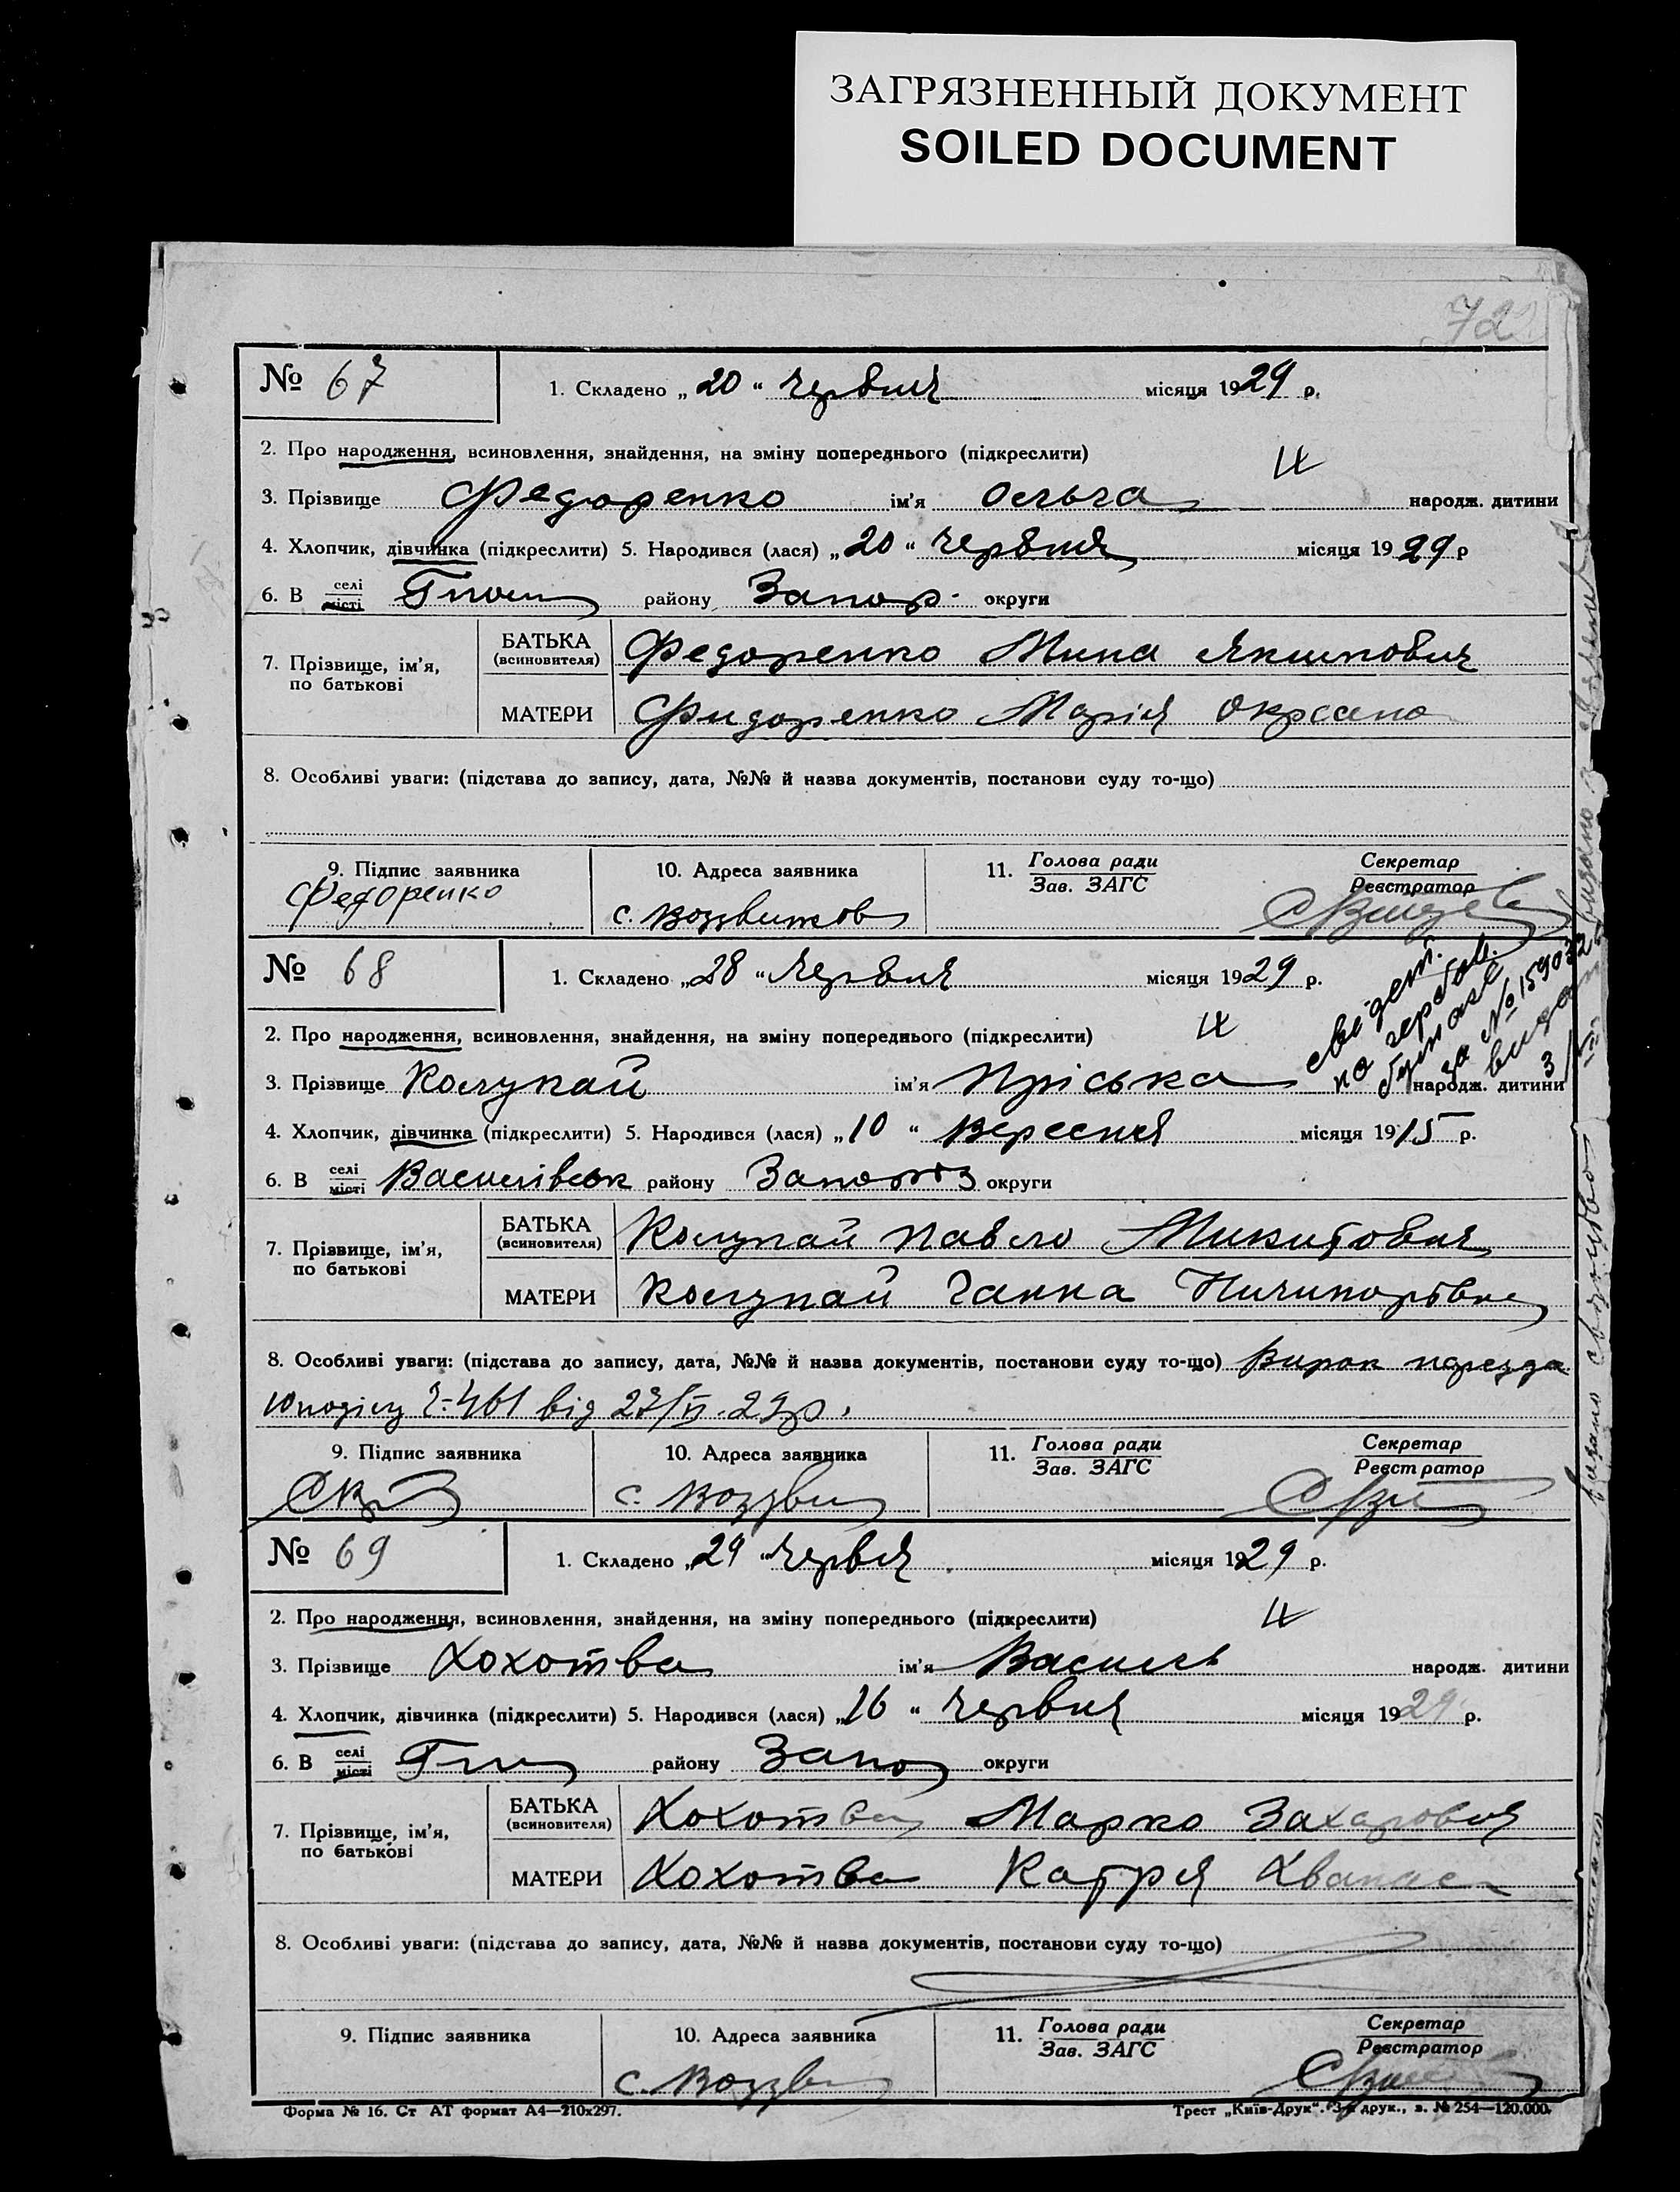 ЗАГРЯЗНЕННЫЙ ДОКУМЕНТ
SOILED DOCUMENT
722
№ 67 1. Складено „ 20 “ червня місяця 1929 р.
2. Про народження, всиновлення, знайдення, на зміну попереднього (підкреслити)
3. Прізвище Федоренко ім'я Ольга народж. дитини
4. Хлопчик, дівчинка (підкреслити) 5. Народився (лася) „ 20 “ червня місяця 1929 р
6. В селі місті району Запор. округи
7. Прізвище, ім'я, по батькові
БАТЬКА (всиновителя) Федоренко Мина Якимович
МАТЕРИ Фидоренко Марія
8. Особливі уваги: (підстава до запису, дата, №№ й назва документів, постанови суду то-що)
9. Підпис заявника 10. Адреса заявника 11. Голова ради Зав. ЗАГС Секретар Реєстратор
Федоренко с. Воздвижов
№ 68 1. Складено „ 28 “ червня місяця 1929 р.
2. Про народження, всиновлення, знайдення, на зміну попереднього (підкреслити)
свідет.
на гербов.
бумазе
за № 159032
видан
3. Прізвище Колупай ім'я Пріська народж. дитини
4. Хлопчик, дівчинка (підкреслити) 5. Народився (лася) „ 10 “ Вересня місяця 1915 р.
6. В селі місті Василівськ району округи
7. Прізвище, ім'я, по батькові
БАТЬКА (всиновителя) Колупай Павло Микитович
МАТЕРИ Колупай Ганна Ничипорівна
8. Особливі уваги: (підстава до запису, дата, №№ й назва документів, постанови суду то-що) Вирок
461 від 27/VI-29р.
9. Підпис заявника 10. Адреса заявника 11. Голова ради Зав. ЗАГС Секретар Реєстратор
с. Воздви
№ 69 1. Складено „ 29 “ червня місяця 1929 р.
2. Про народження, всиновлення, знайдення, на зміну попереднього (підкреслити)
3. Прізвище Хохотва ім'я Василь народж. дитини
4. Хлопчик, дівчинка (підкреслити) 5. Народився (лася) „ 16 “ червня місяця 1929 р.
6. В селі місті району Запо округи
7. Прізвище, ім'я, по батькові
БАТЬКА (всиновителя) Хохотва Марко Захарович
МАТЕРИ Хохотва Катря
8. Особливі уваги: (підстава до запису, дата, №№ й назва документів, постанови суду то-що)
9. Підпис заявника 10. Адреса заявника 11. Голова ради Зав. ЗАГС Секретар Реєстратор
с. Воздв
Форма № 16. Ст АТ формат А4—210х297. Трест „Київ-Друк“. 3-я друк., з. № 254—120.000.